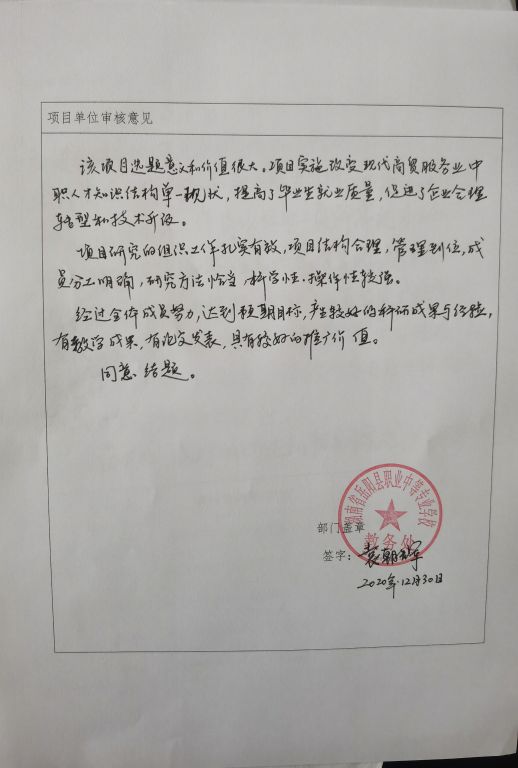 项目单位审核意见
该项目选题意义和价值很大。项目实施改变现代商贸服务业中
职人才知识结构单一现状，提高了毕业生就业质量，促进了企业合理
转型和技术升级。
项目研究的组织工作扎实有效，项目结构合理，管理到位，成
员分工明确，研究方法恰当，科学性、操作性较强。
经过全体成员努力，达到预期目标，产生较好的科研成果与经验，
有教学成果，有论文发表，具有较好的推广价值。
同意结题。
湖南省岳阳县职业中等专业学校
部门盖章
教务处
签字：袁朝辉
2020年12月30日